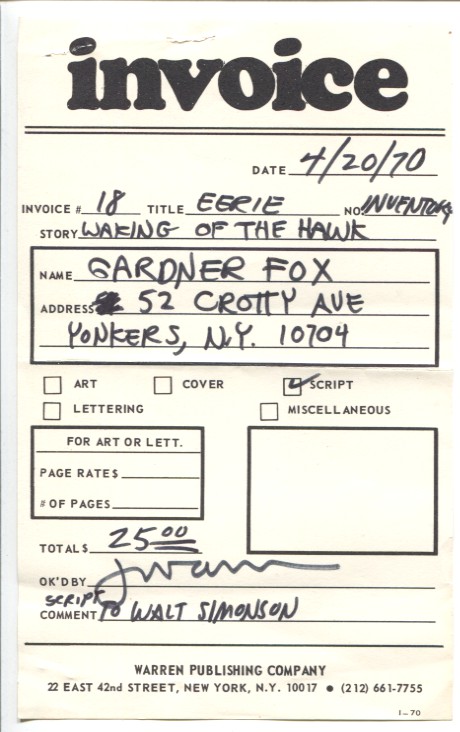 invoice
DATE 4/20/70
INVOICE # 18 TITLE EERIE NO. INVENTORY
STORY WAKING OF THE HAWK
NAME GARDNER FOX
ADDRESS 52 CROTTY AVE
YONKERS, N.Y. 10704
ART COVER SCRIPT
LETTERING MISCELLANEOUS
FOR ART OR LETT.
PAGE RATE $
# OF PAGES
TOTAL $ 25.00
OK'D BY JWarren
SCRIPT
COMMENT TO WALT SIMONSON
WARREN PUBLISHING COMPANY
22 EAST 42nd STREET, NEW YORK, N.Y. 10017 • (212) 661-7755
1-70